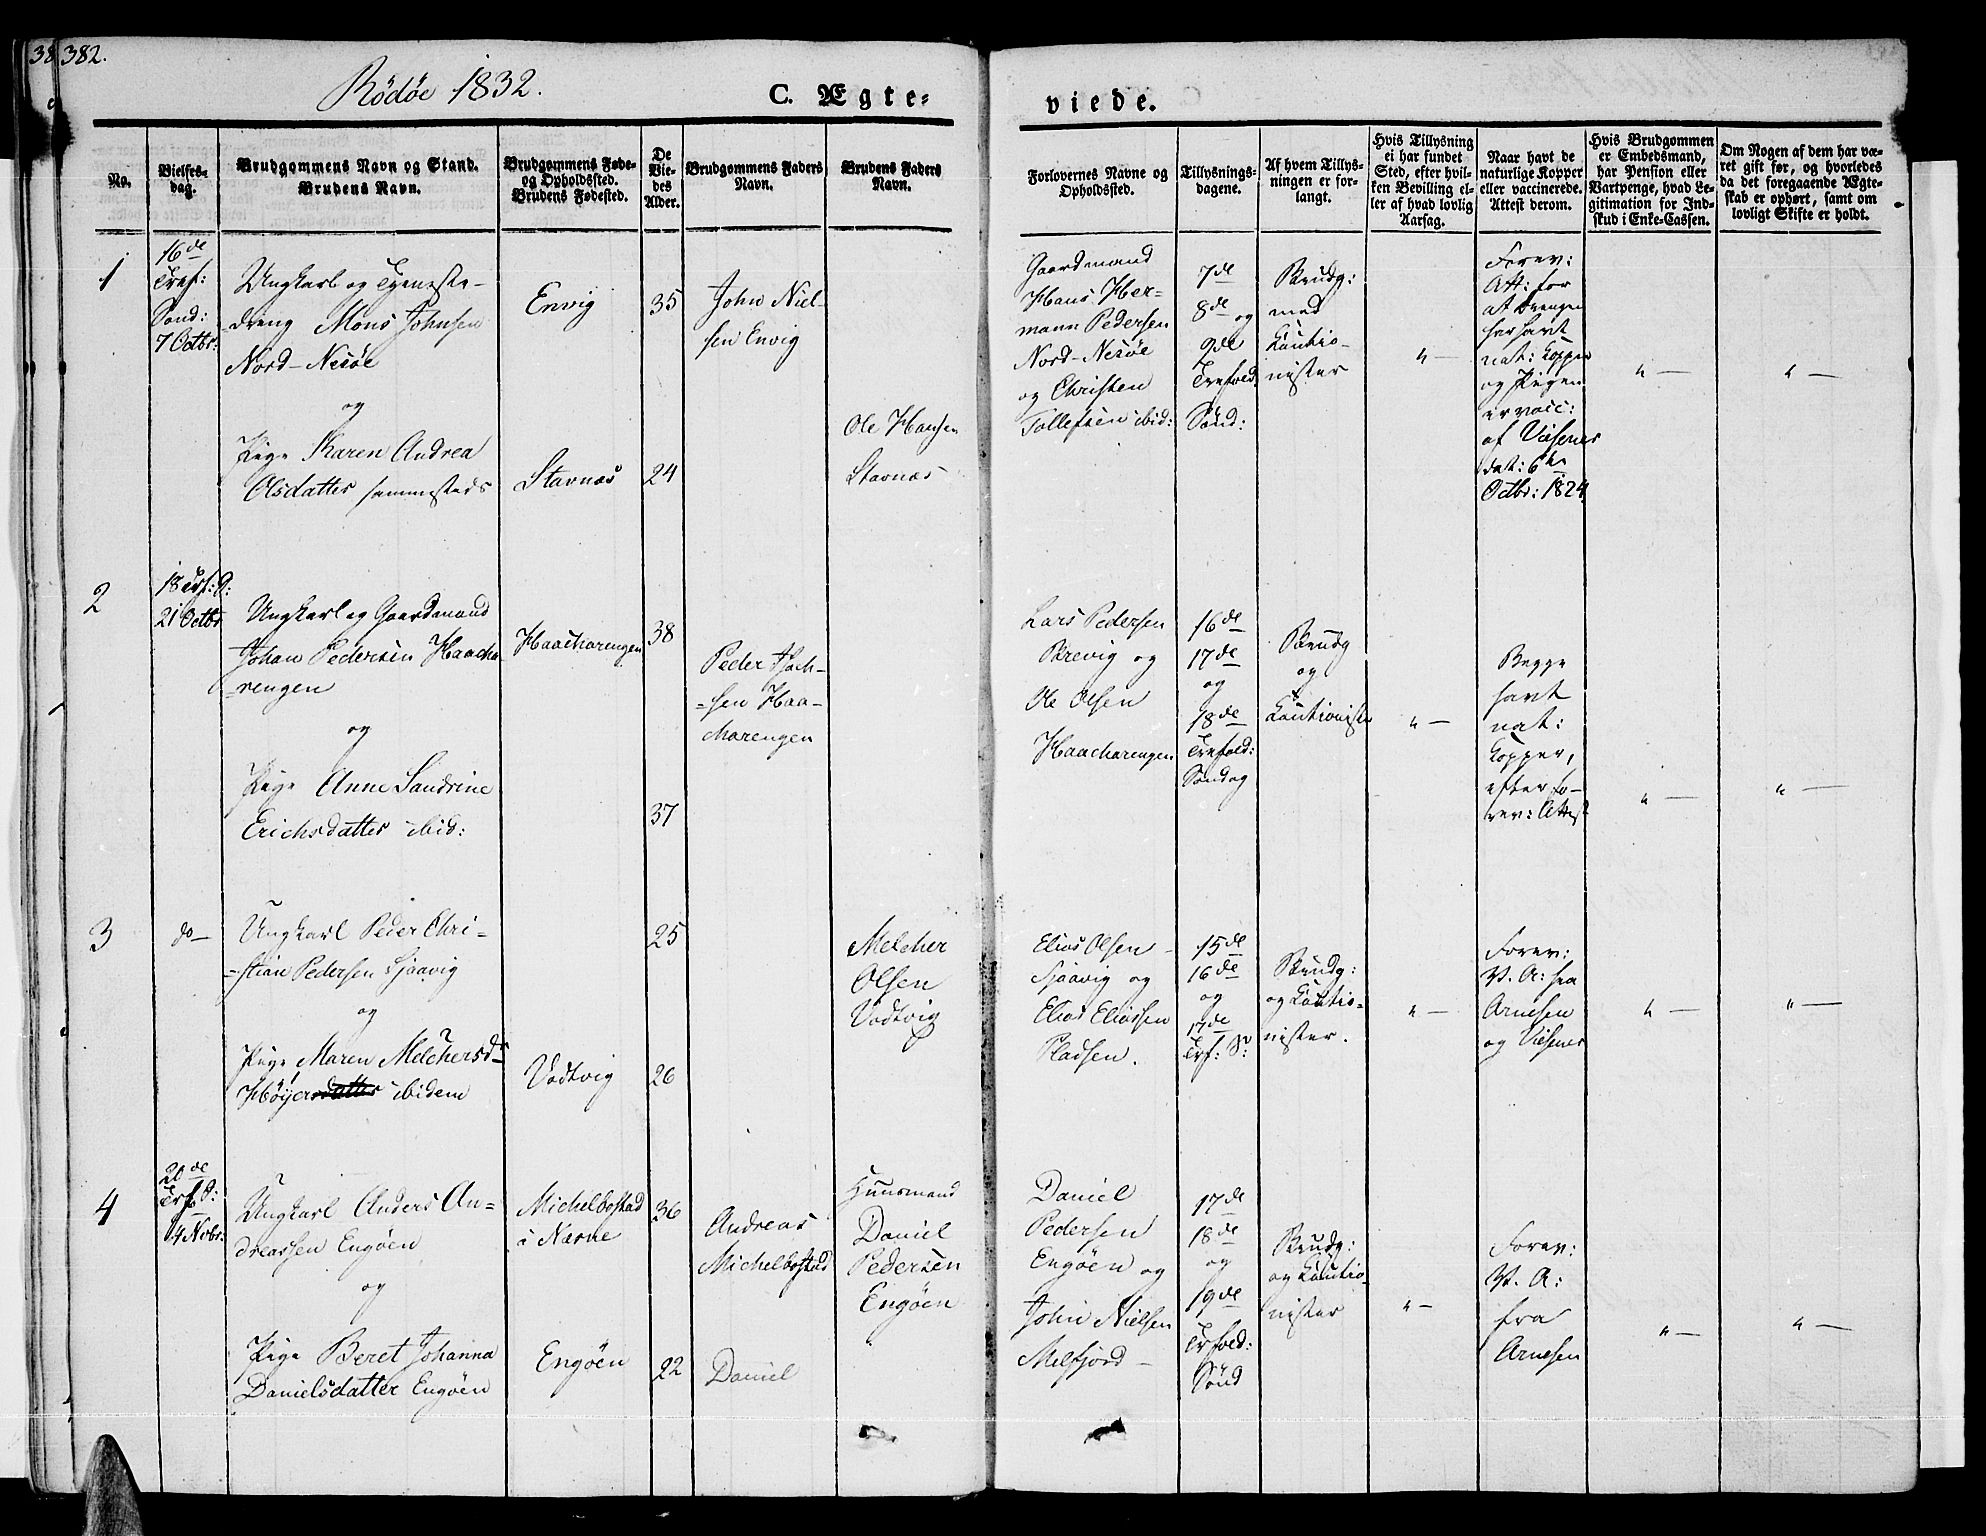 38 382.
Rödöe 1832.
C. Ægte-
viede.
No.
Vielses-
dag.
Brudgommens Navn og Stand.
Brudens Navn.
Brudgommens Føde-
og Opholdssted.
Brudens Fødested.
De
Vie-
des
Alder.
Brudgommens Faders
Navn.
Brudens Faders
Navn.
Forlovernes Navne og
Opholdssted.
Tillysnings-
dagene.
Af hvem Tillys-
ningen er for-
langt.
Hvis Tillysning
ei har fundet
Sted, efter hvil-
ken Bevilling el-
ler af hvad lovlig
Aarsag.
Naar havt de
naturlige Kopper
eller vaccinerede.
Attest derom.
Hvis Brudgommen
er Embedsmand,
har Pension eller
Vartpenge, hvad Le-
gitimation for Ind-
skud i Enke-Cassen.
Om Nogen af dem har væ-
ret gift før, og hvorledes
da det foregaaende Ægte-
skab er ophørt, samt om
lovligt Skifte er holdt.
1
16de
Tref:
Sönd:
7 Octbr:
Ungkarl og Tjeneste-
dreng Mons Johnsen
Nord-Nesöe
og
Pige Karen Andrea
Olsdatter sammesteds
Envig
Stavnæs
35
24
John Niel-
sen Envig
Ole Hansen
Stavnæs
Gaardmand
Hans Her-
mann Pedersen
Nord-Nesöe
og Christen
Tollefsen ibid:
7de
8de og
9de
Trefold:
Sönd:
Brudg:
med
Kautio-
nister
" —
Forev:
Att: for
at Drengen
har havt
nat: Kopper
og Pigen
er vacc:
af Visener
dat: 6te
Octbr: 1824
" —
" —
2
18 Trf: S:
21 Octbr
Ungkarl og Gaardmand
Johan Pedersen Haacha-
-rengen
og
Pige Anne Sandrine
Erichsdatter ibid:
Haacharengen
38
37
Peder Isach-
-sen Haa-
charengen
Lars Pedersen
Brevig og
Ole Olsen
Haacharengen
16de
17de
og
18de
Trefold:
Söndag
Brudg
og
Kautionister
" —
Begge
havt
nat:
Kopper,
efter fo-
rev: Attest
" —
" —
3
do —
Ungkarl Peder Chri-
-stian Pedersen Sjaavig
og
Pige Maren Melchersdr
Höyersdatter ibidem
Vodtvig
25
26
Melcher
Olsen
Vodtvig
Elias Olsen
Sjaavig og
Elias Eliassen
Pladsen.
15de
16de
og
17de
Trf: S:
Brudg:
og Kautio-
nister.
" —
Forev:
V. A: fra
Arnesen
og Visener
" —
" —
4
20de
Trf: S:
4 Nvbr:
Ungkarl Anders An-
dreassen Engöen
og
Pige Beret Johanna
Danielsdatter Engöen
Michelbostad
i Næsne
Engöen
36
22
Andreas
Michelbostad
Daniel
Huusmand
Daniel
Pedersen
Engöen
Daniel
Pedersen
Engöen og
John Nielsen
Melfjord —
17de
18de
og
19de
Trfold:
Sönd
Brudg:
og Kautio-
nister
" —
Forev:
V. A:
fra
Arnesen
" —
" —